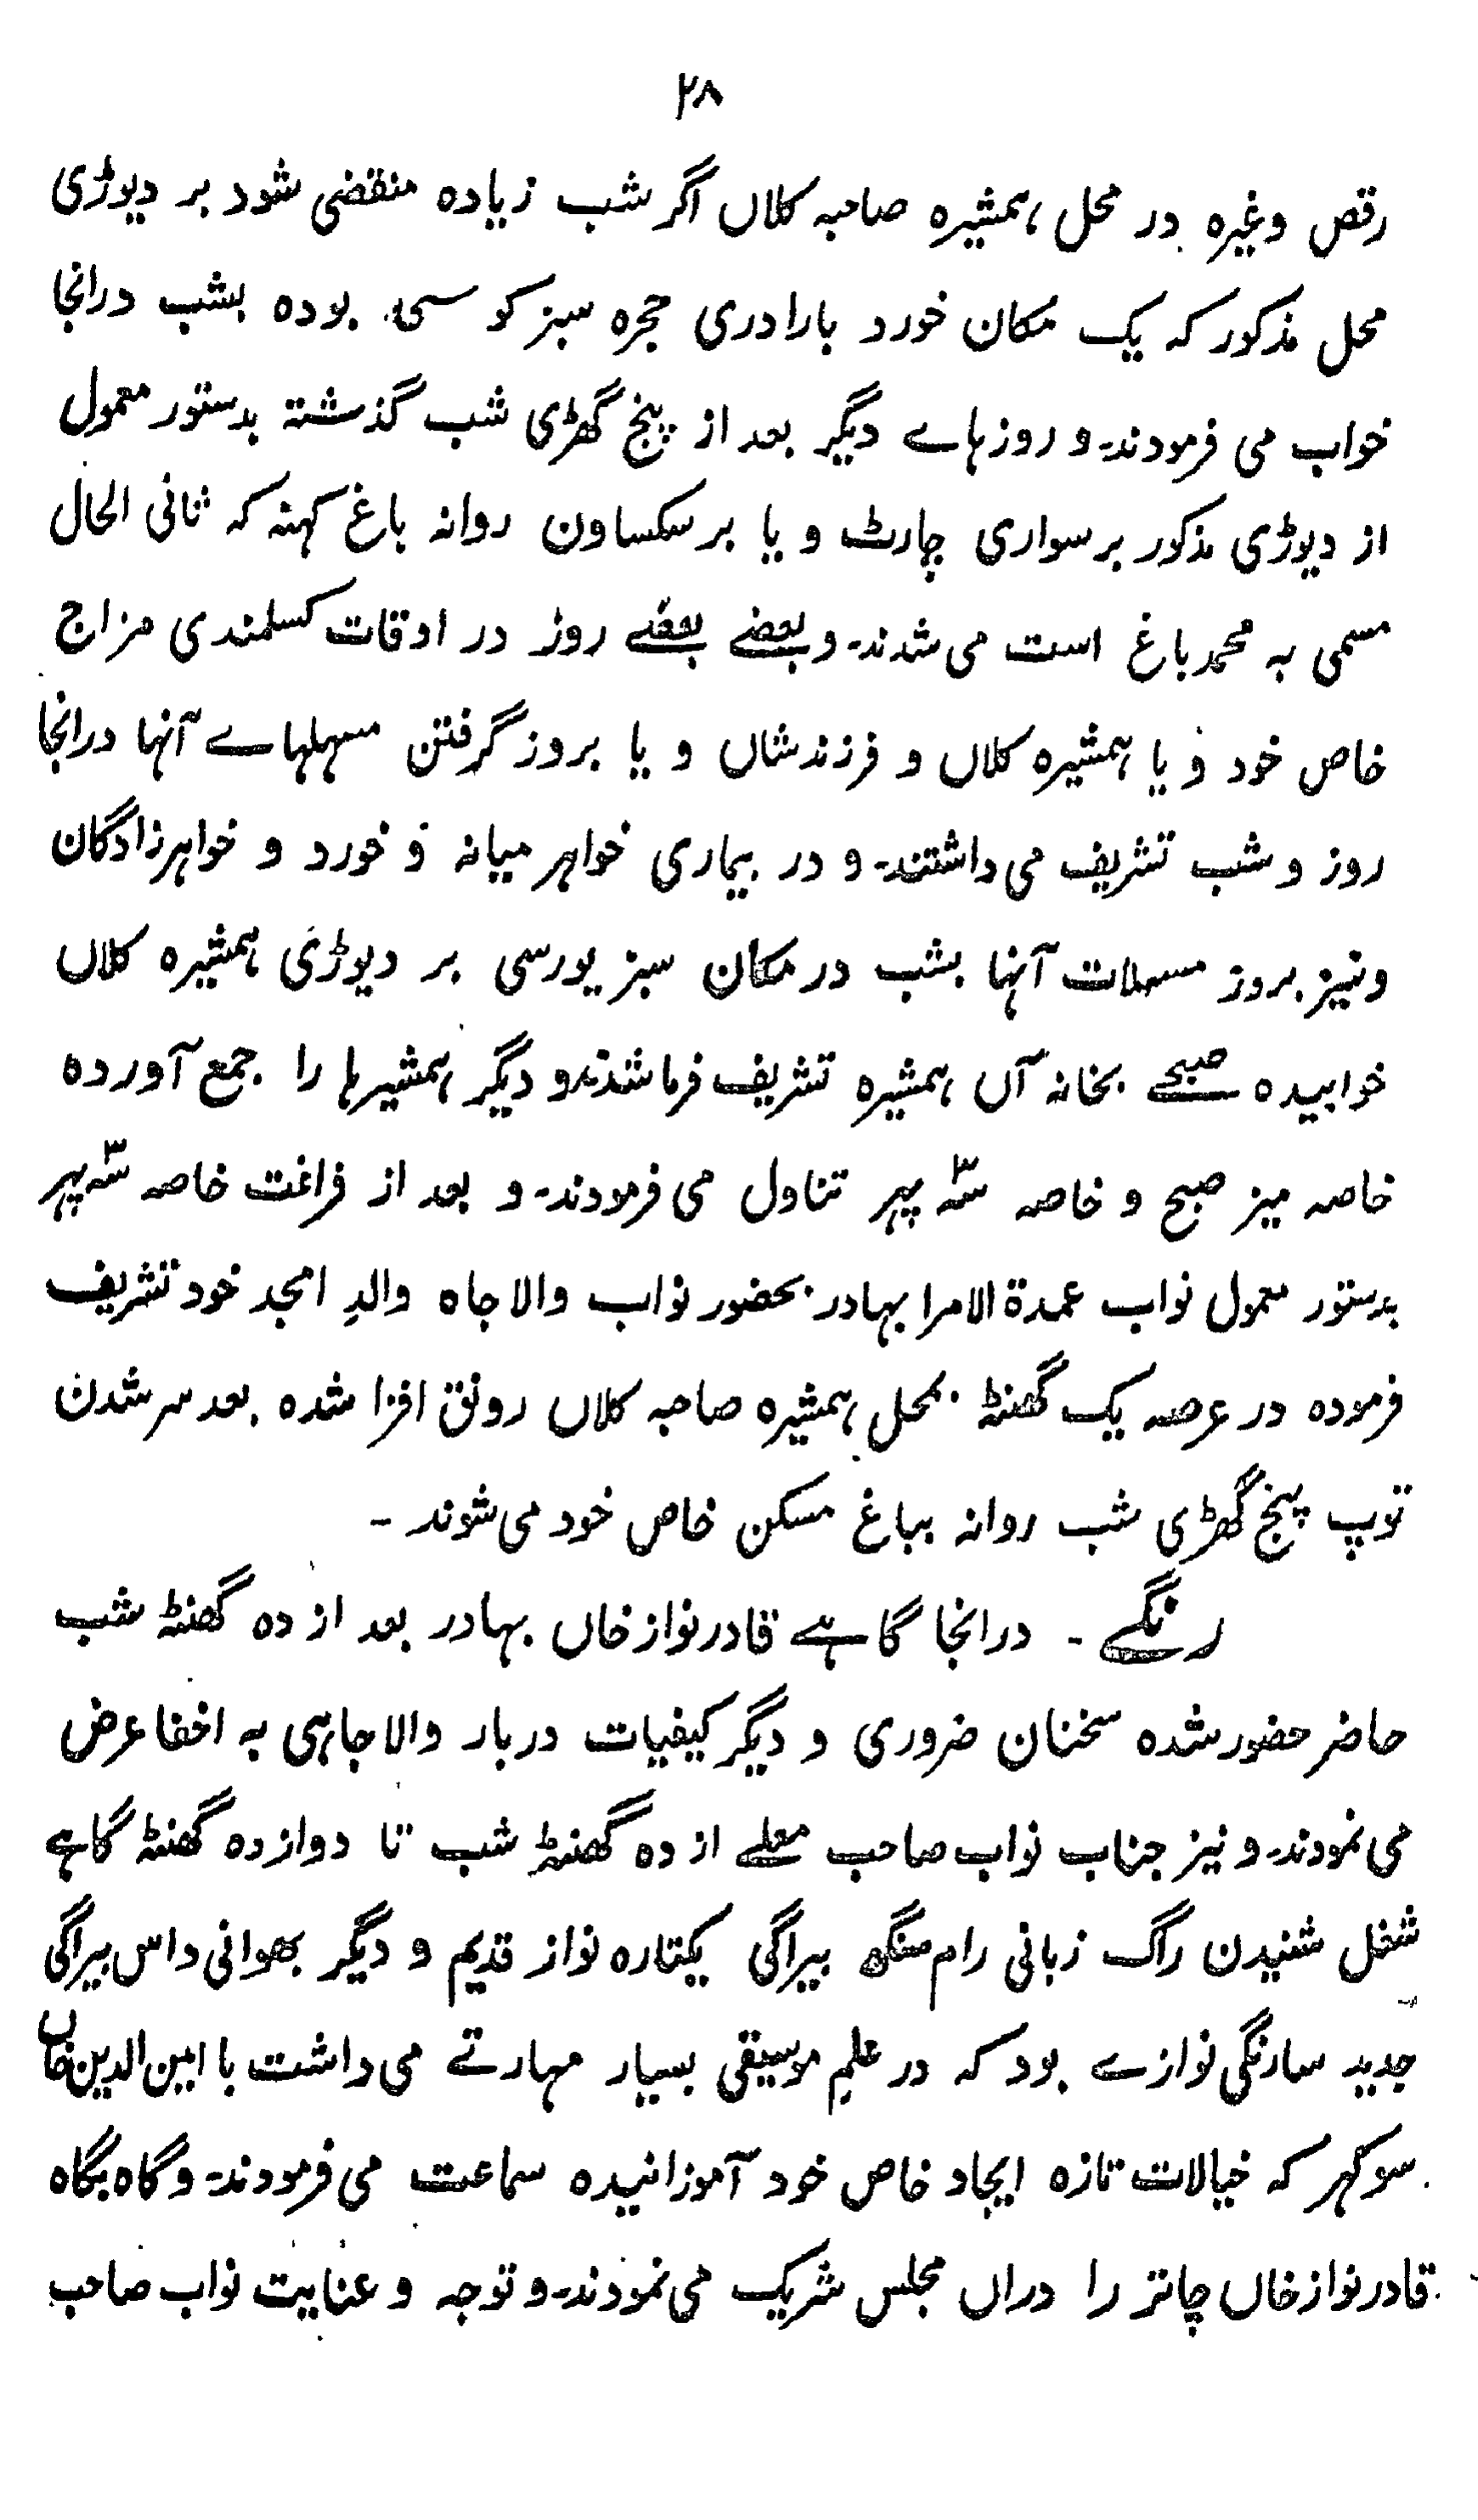 ۲۸
رقص وغیرہ در محل ہمشیرہ صاحبہ کلاں اگر شب زیادہ منقضی شود بر دیوڑی
محل مذکور کہ یک مکان خورد بارادری حجرہ سبز کو سمی بودہ بشب درانجا
خواب می فرمودند۔ و روزہاے دیگر بعد از پنج گھڑی شب گذشتہ بدستور معمول
از دیوڑی مذکور بر سواری چارٹ و یا بر سکساون روانہ باغ کہنہ کہ ثانی الحال
مسمی بہ محمد باغ است می شدند۔ و بعضے بعضے روز در اوقات کسلمندی مزاج
خاص خود و یا ہمشیرہ کلاں و فرزند شاں و یا بروز گرفتن مسہلہاے آنہا درانجا
روز و شب تشریف می داشتند۔ و در بیماری خواہر میانہ و خورد و خواہرزادگان
و نیز بروز مسہلات آنہا بشب در مکان سبز یورسی بر دیوڑی ہمشیرہ کلاں
خوابیدہ صبحے بخانہ آں ہمشیرہ تشریف فرما شدند و دیگر ہمشیرہا را جمع آوردہ
خاصہ میز صبح و خاصہ سہ پہر تناول می فرمودند۔ و بعد از فراغت خاصہ سہ پہر
بدستور معمول نواب عمدة الامرا بہادر بحضور نواب والاجاہ والدِ امجد خود تشریف
فرمودہ در عرصہ یک گھنٹہ بمحل ہمشیرہ صاحبہ کلاں رونق افزا شدہ بعد سر شدن
توپ پنج گھڑی شب روانہ بباغ مسکن خاص خود می شوند ۔
رنگے ۔ درانجا گاہے قادر نواز خاں بہادر بعد از دہ گھنٹہ شب
حاضر حضور شدہ سخنان ضروری و دیگر کیفیات دربار والاجاہی بہ اخفا عرض
می نمودند۔ و نیز جناب نواب صاحب معلے از دہ گھنٹہ شب تا دوازدہ گھنٹہ گاہے
شغل شنیدن راگ زبانی رام سنگہ بیراگی یکتارہ نواز قدیم و دیگر بھوانی داس بیراگی
جدید سارنگی نوازے بود کہ در علمِ موسیقی بسیار مہارتے می داشت با امین الدین خاں
سوکہر کہ خیالات تازہ ایجاد خاص خود آموزانیدہ سماعت می فرمودند۔ و گاہ بگاہ
قادر نواز خاں چاتر را دراں مجلس شریک می نمودند۔ و توجہ و عنایت نواب صاحب